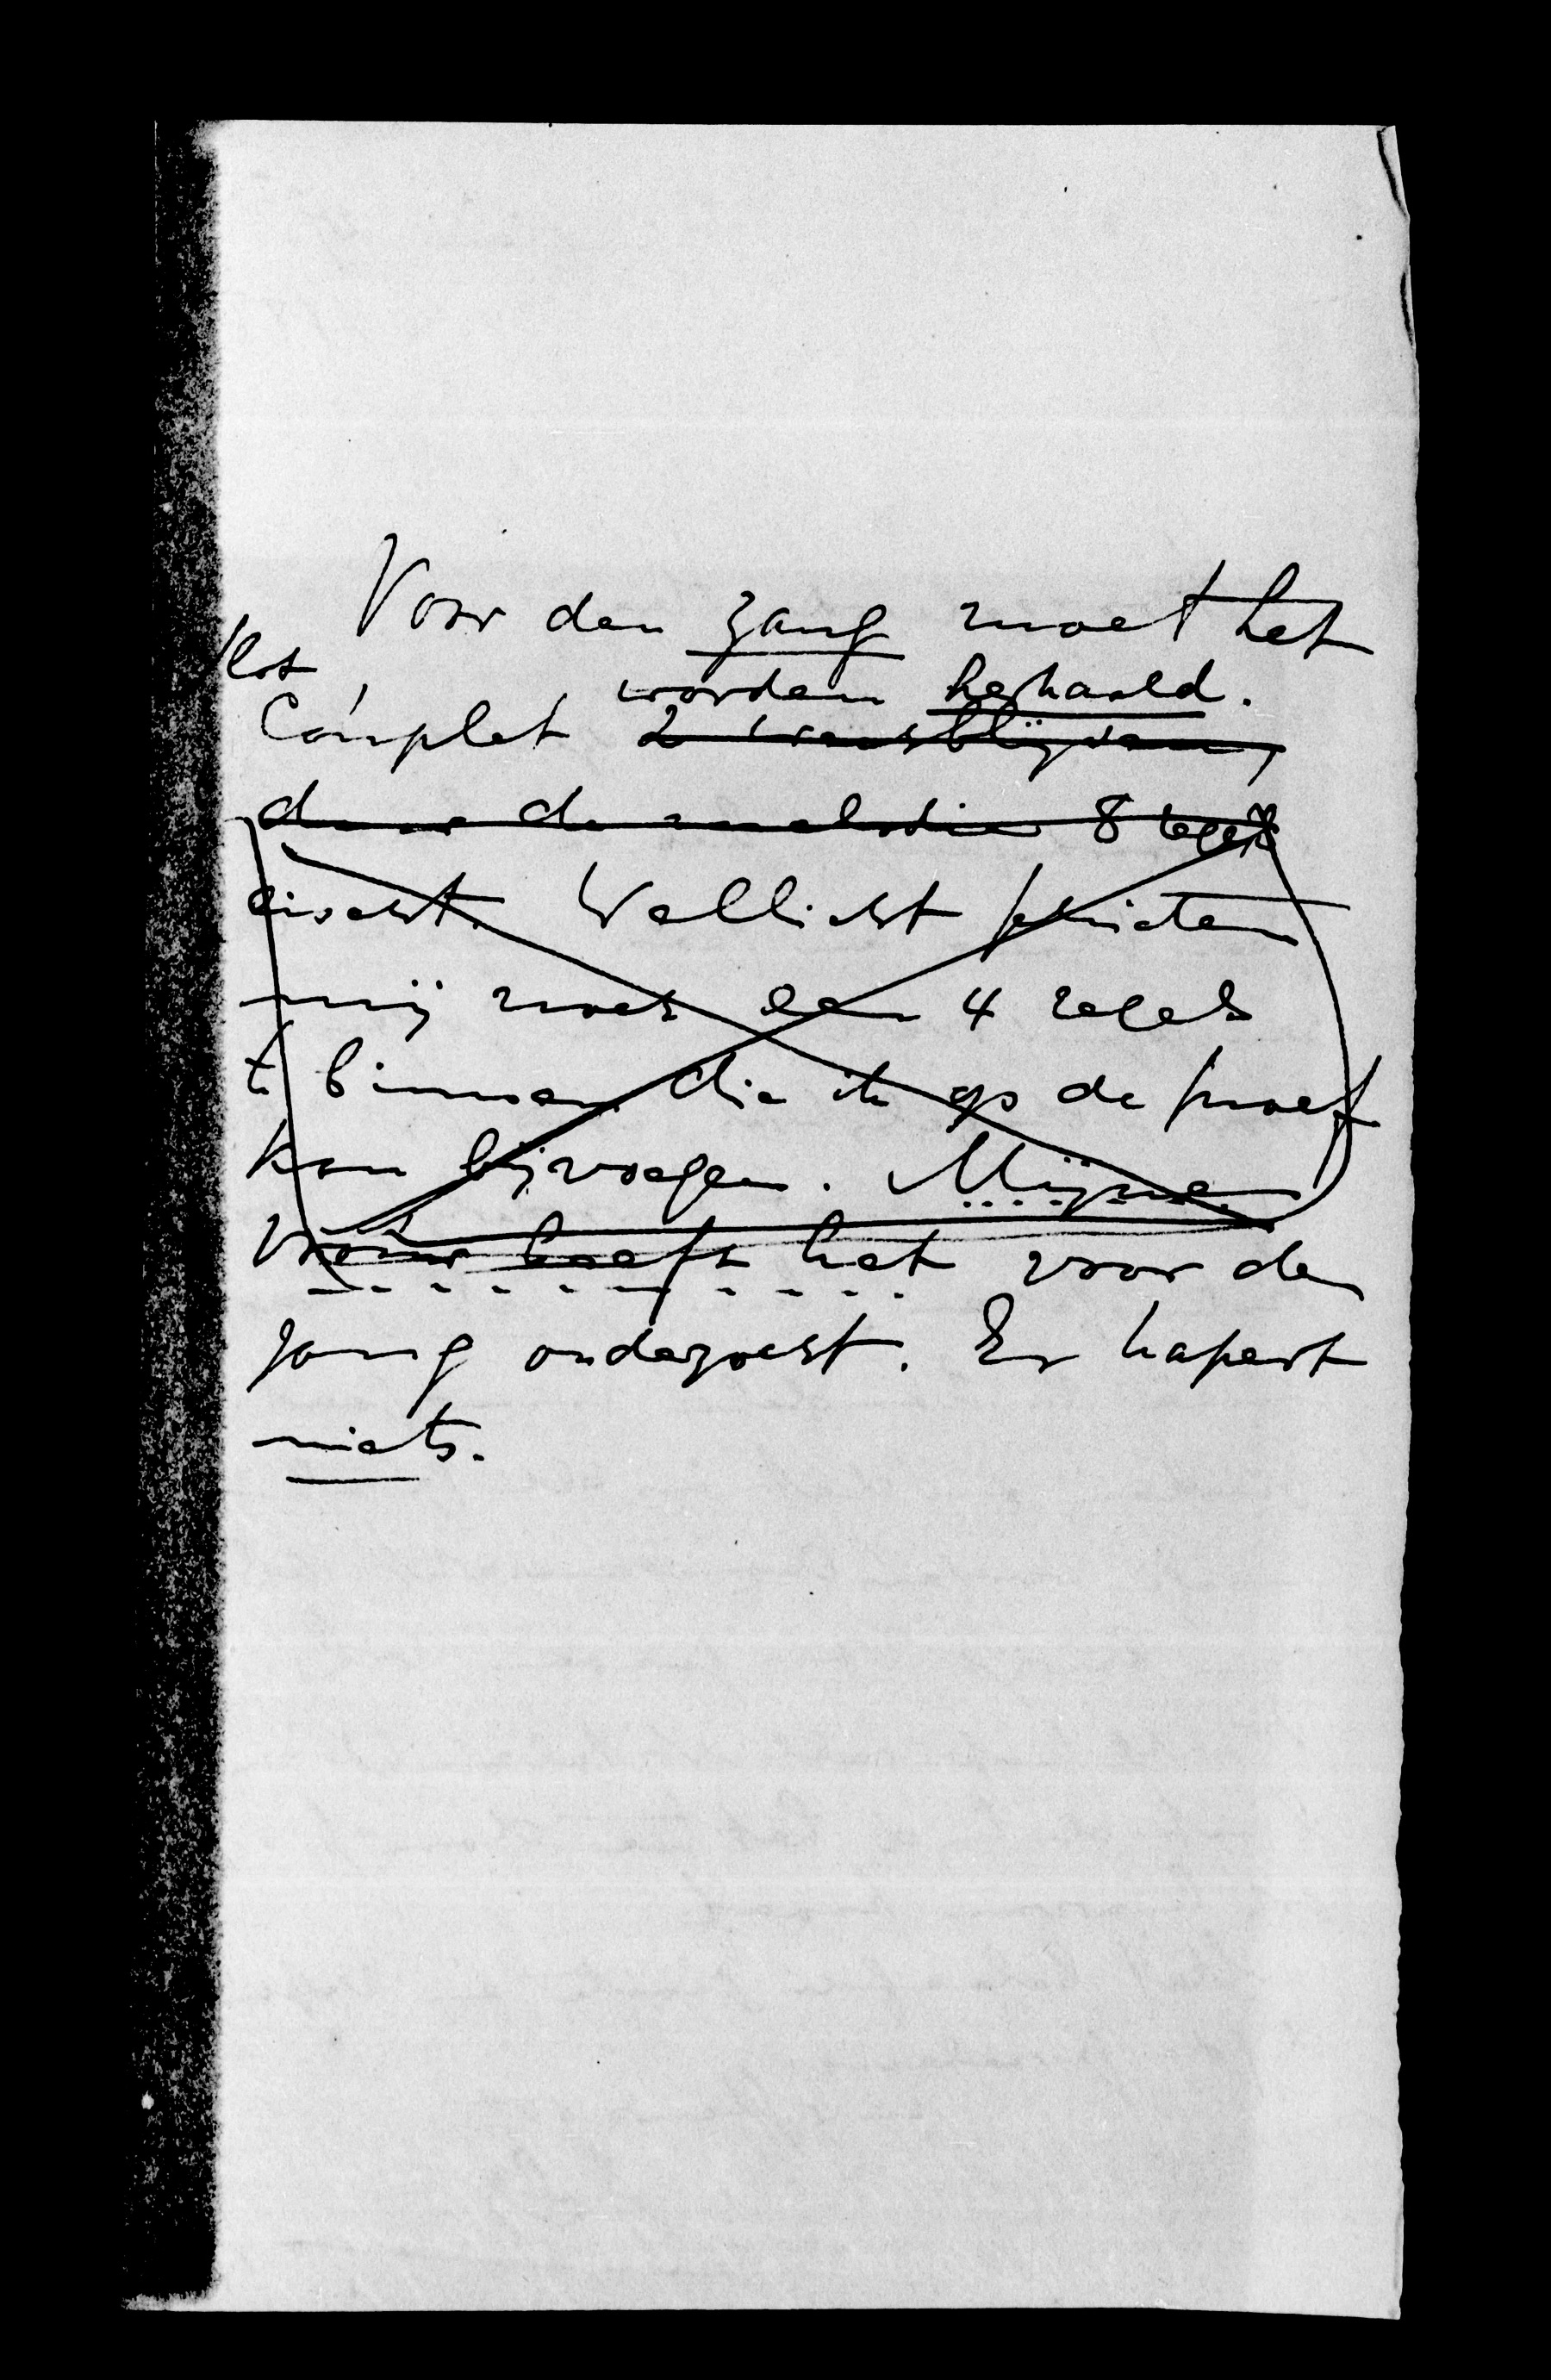 Voor den zang moet het
slot
worden herhaald.
Couplet 2 maal blijven,
daar de melodie 8 regels
eischt. Wellicht schieten
mij nog een 4 regels
te binnen die ik op de proef
kan bijvoegen. Mijne
Vrouw heeft het voor den
zang onderzocht. Er hapert
niets.